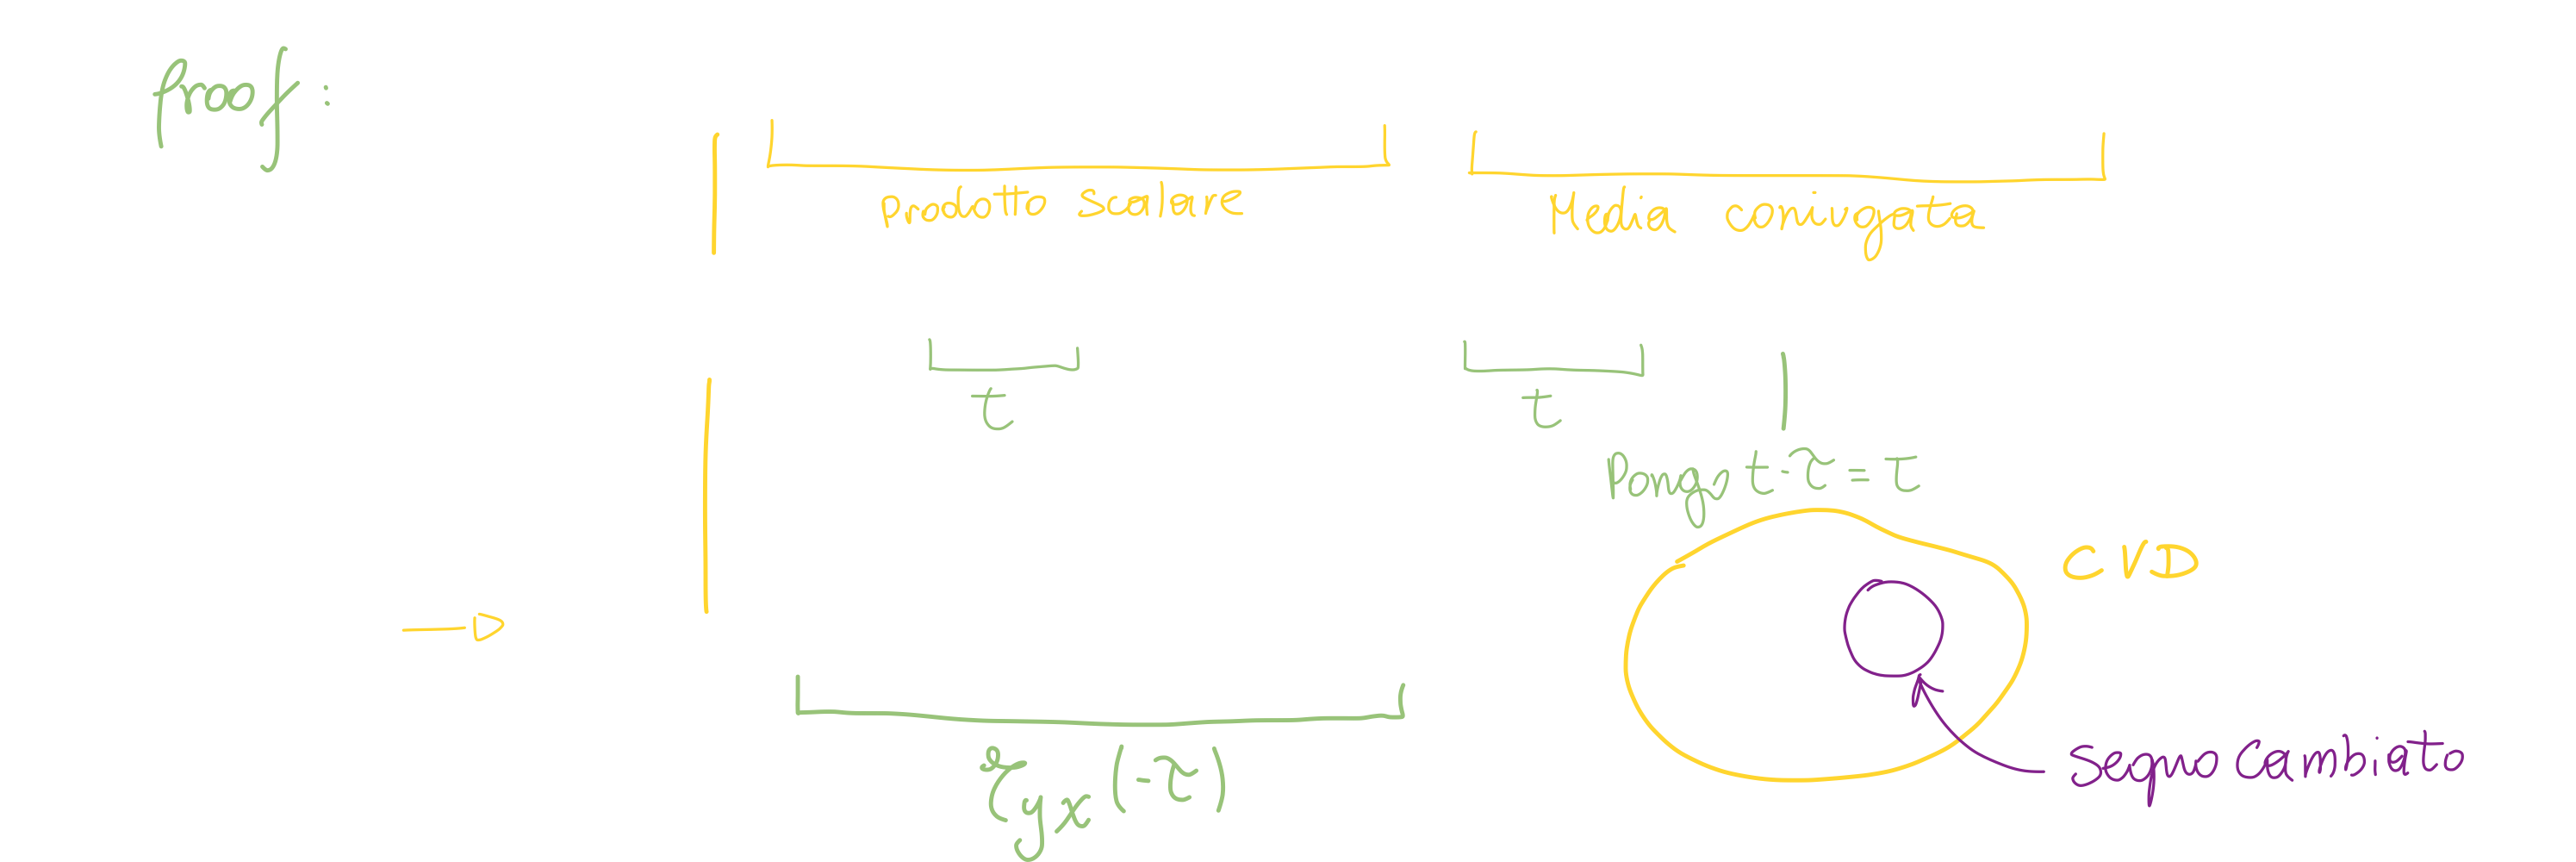 Proof:
Prodotto scalare
Media coniugata
t
t
Pongo t-τ = t
CVD
r_yx(-τ)
segno cambiato